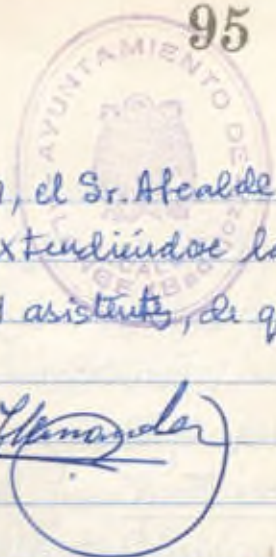 95
AYUNTAMIENTO DE
, el Sr. Alcalde
xtendiéndose la
l asistentes, de q
Hernandez